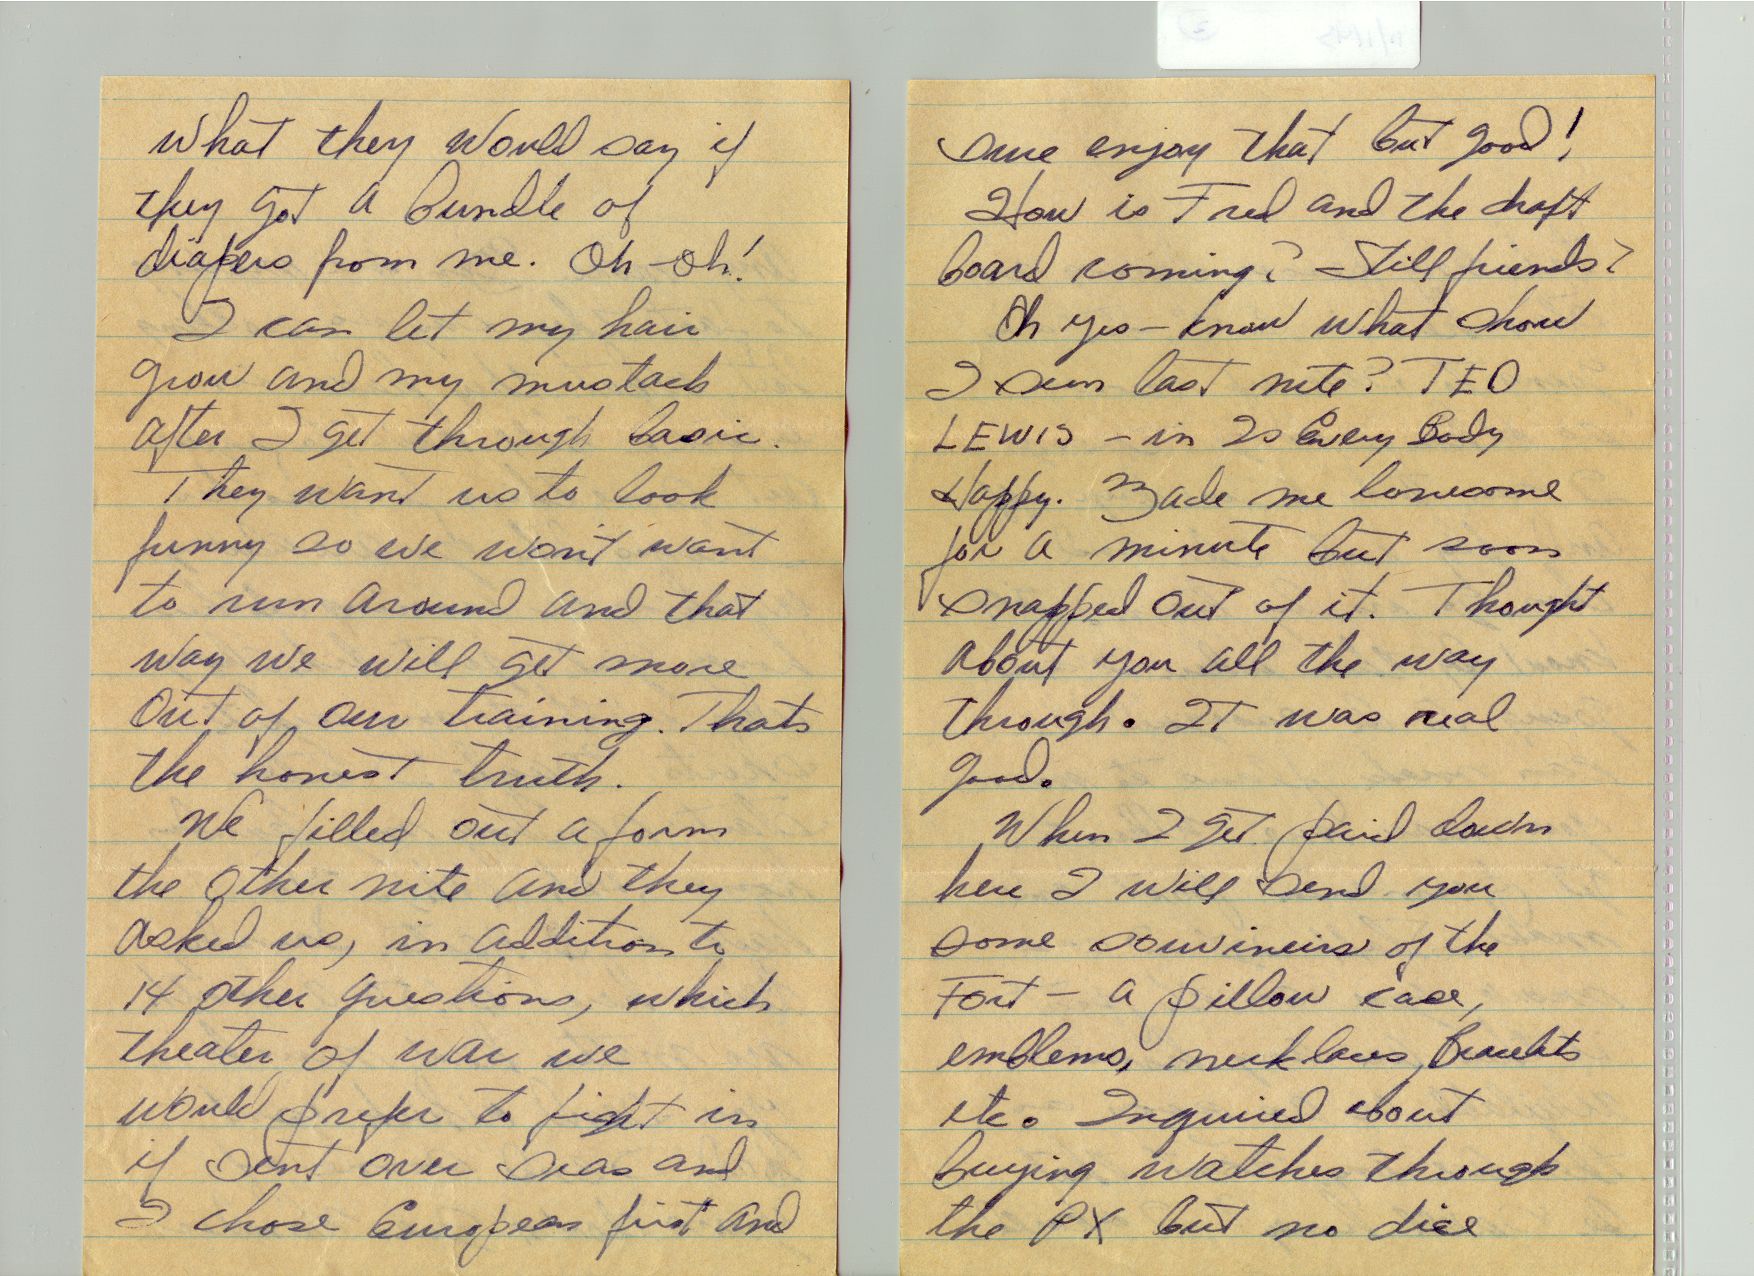 What they would say if
they got a bundle of
diapers from me. Oh-oh!
I can let my hair
grow and my mustach
after I get through basic.
They want us to look
funny so we won't want
to run around and that
way we will get more
out of our training. Thats
the honest truth.
We filled out a form
the other nite and they
asked us, in addition to
14 other questions, which
theater of war we
would prefer to fight in
if sent over seas and
I chose European first and
sure enjoy that but good!
How is Fred and the draft
board coming? Still friends?
Oh yes - know what show
I seen last nite? TED
LEWIS - in Is Every Body
Happy. Made me lonesome
for a minute but soon
snapped out of it. Thought
about you all the way
through. It was real
good.
When I get paid down
here I will send you
some souvineirs of the
Fort - a pillow case,
emblems, necklaces, bracelets
etc. Inquired about
buying watches through
the PX but no dice